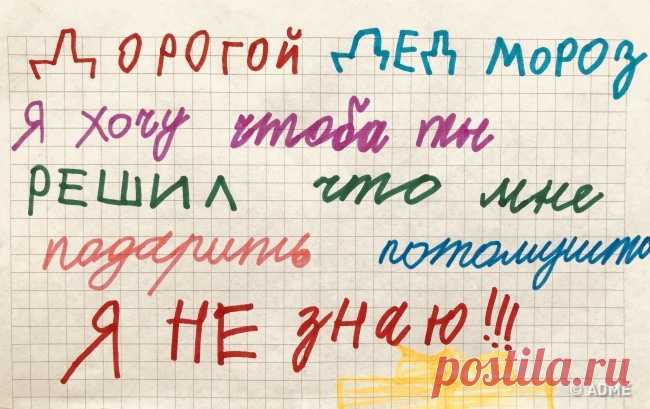 ДОРОГОЙ ДЕД МОРОЗ
Я хочу чтоба ты
РЕШИЛ что мне
падарить потомушто
Я НЕ знаю!!!
postila.ru
© ADME